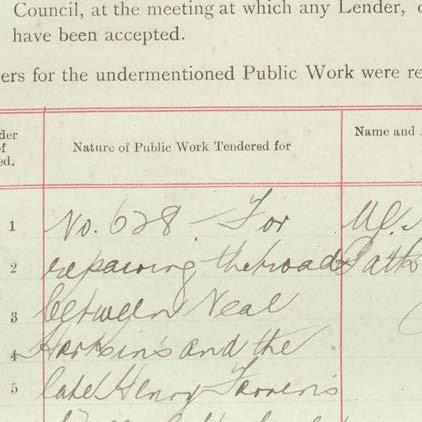 Council, at the meeting at which any Lender,
have been accepted.
ers for the undermentioned Public Work were re
der
of
ed.
Nature of Public Work Tendered for
Name and
1 No. 628. For
2 repairing the road
3 between Neal
4 Harkin's and the
5 late Henry